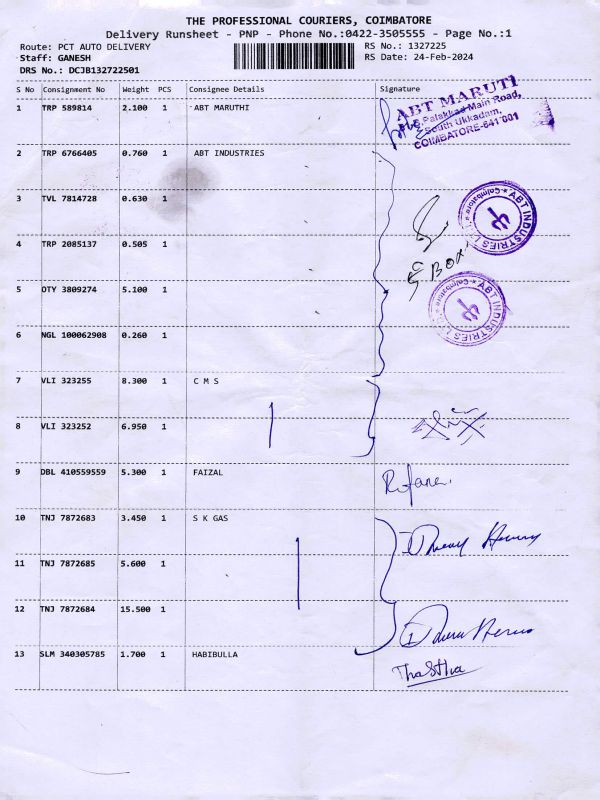 THE PROFESSIONAL COURIERS, COIMBATORE
Delivery Runsheet - PNP - Phone No.:0422-3505555 - Page No.:1
Route: PCT AUTO DELIVERY RS No.: 1327225
Staff: GANESH RS Date: 24-Feb-2024
DRS No.: DCJB132722501
S No Consignment No Weight PCS Consignee Details Signature
1 TRP 589814 2.100 1 ABT MARUTHI
ABT MARUTI
Palakkad Main Road,
South Ukkadam,
COIMBATORE-641 001
2 TRP 6766405 0.760 1 ABT INDUSTRIES
3 TVL 7814728 0.630 1
ABT INDUSTRIES LTD. Coimbatore
4 TRP 2085137 0.505 1
5 BOX
5 OTY 3809274 5.100 1
ABT INDUSTRIES LTD. Coimbatore
6 NGL 100062908 0.260 1
7 VLI 323255 8.300 1 C M S
8 VLI 323252 6.950 1
9 DBL 410559559 5.300 1 FAIZAL
10 TNJ 7872683 3.450 1 S K GAS
11 TNJ 7872685 5.600 1
12 TNJ 7872684 15.500 1
13 SLM 340305785 1.700 1 HABIBULLA